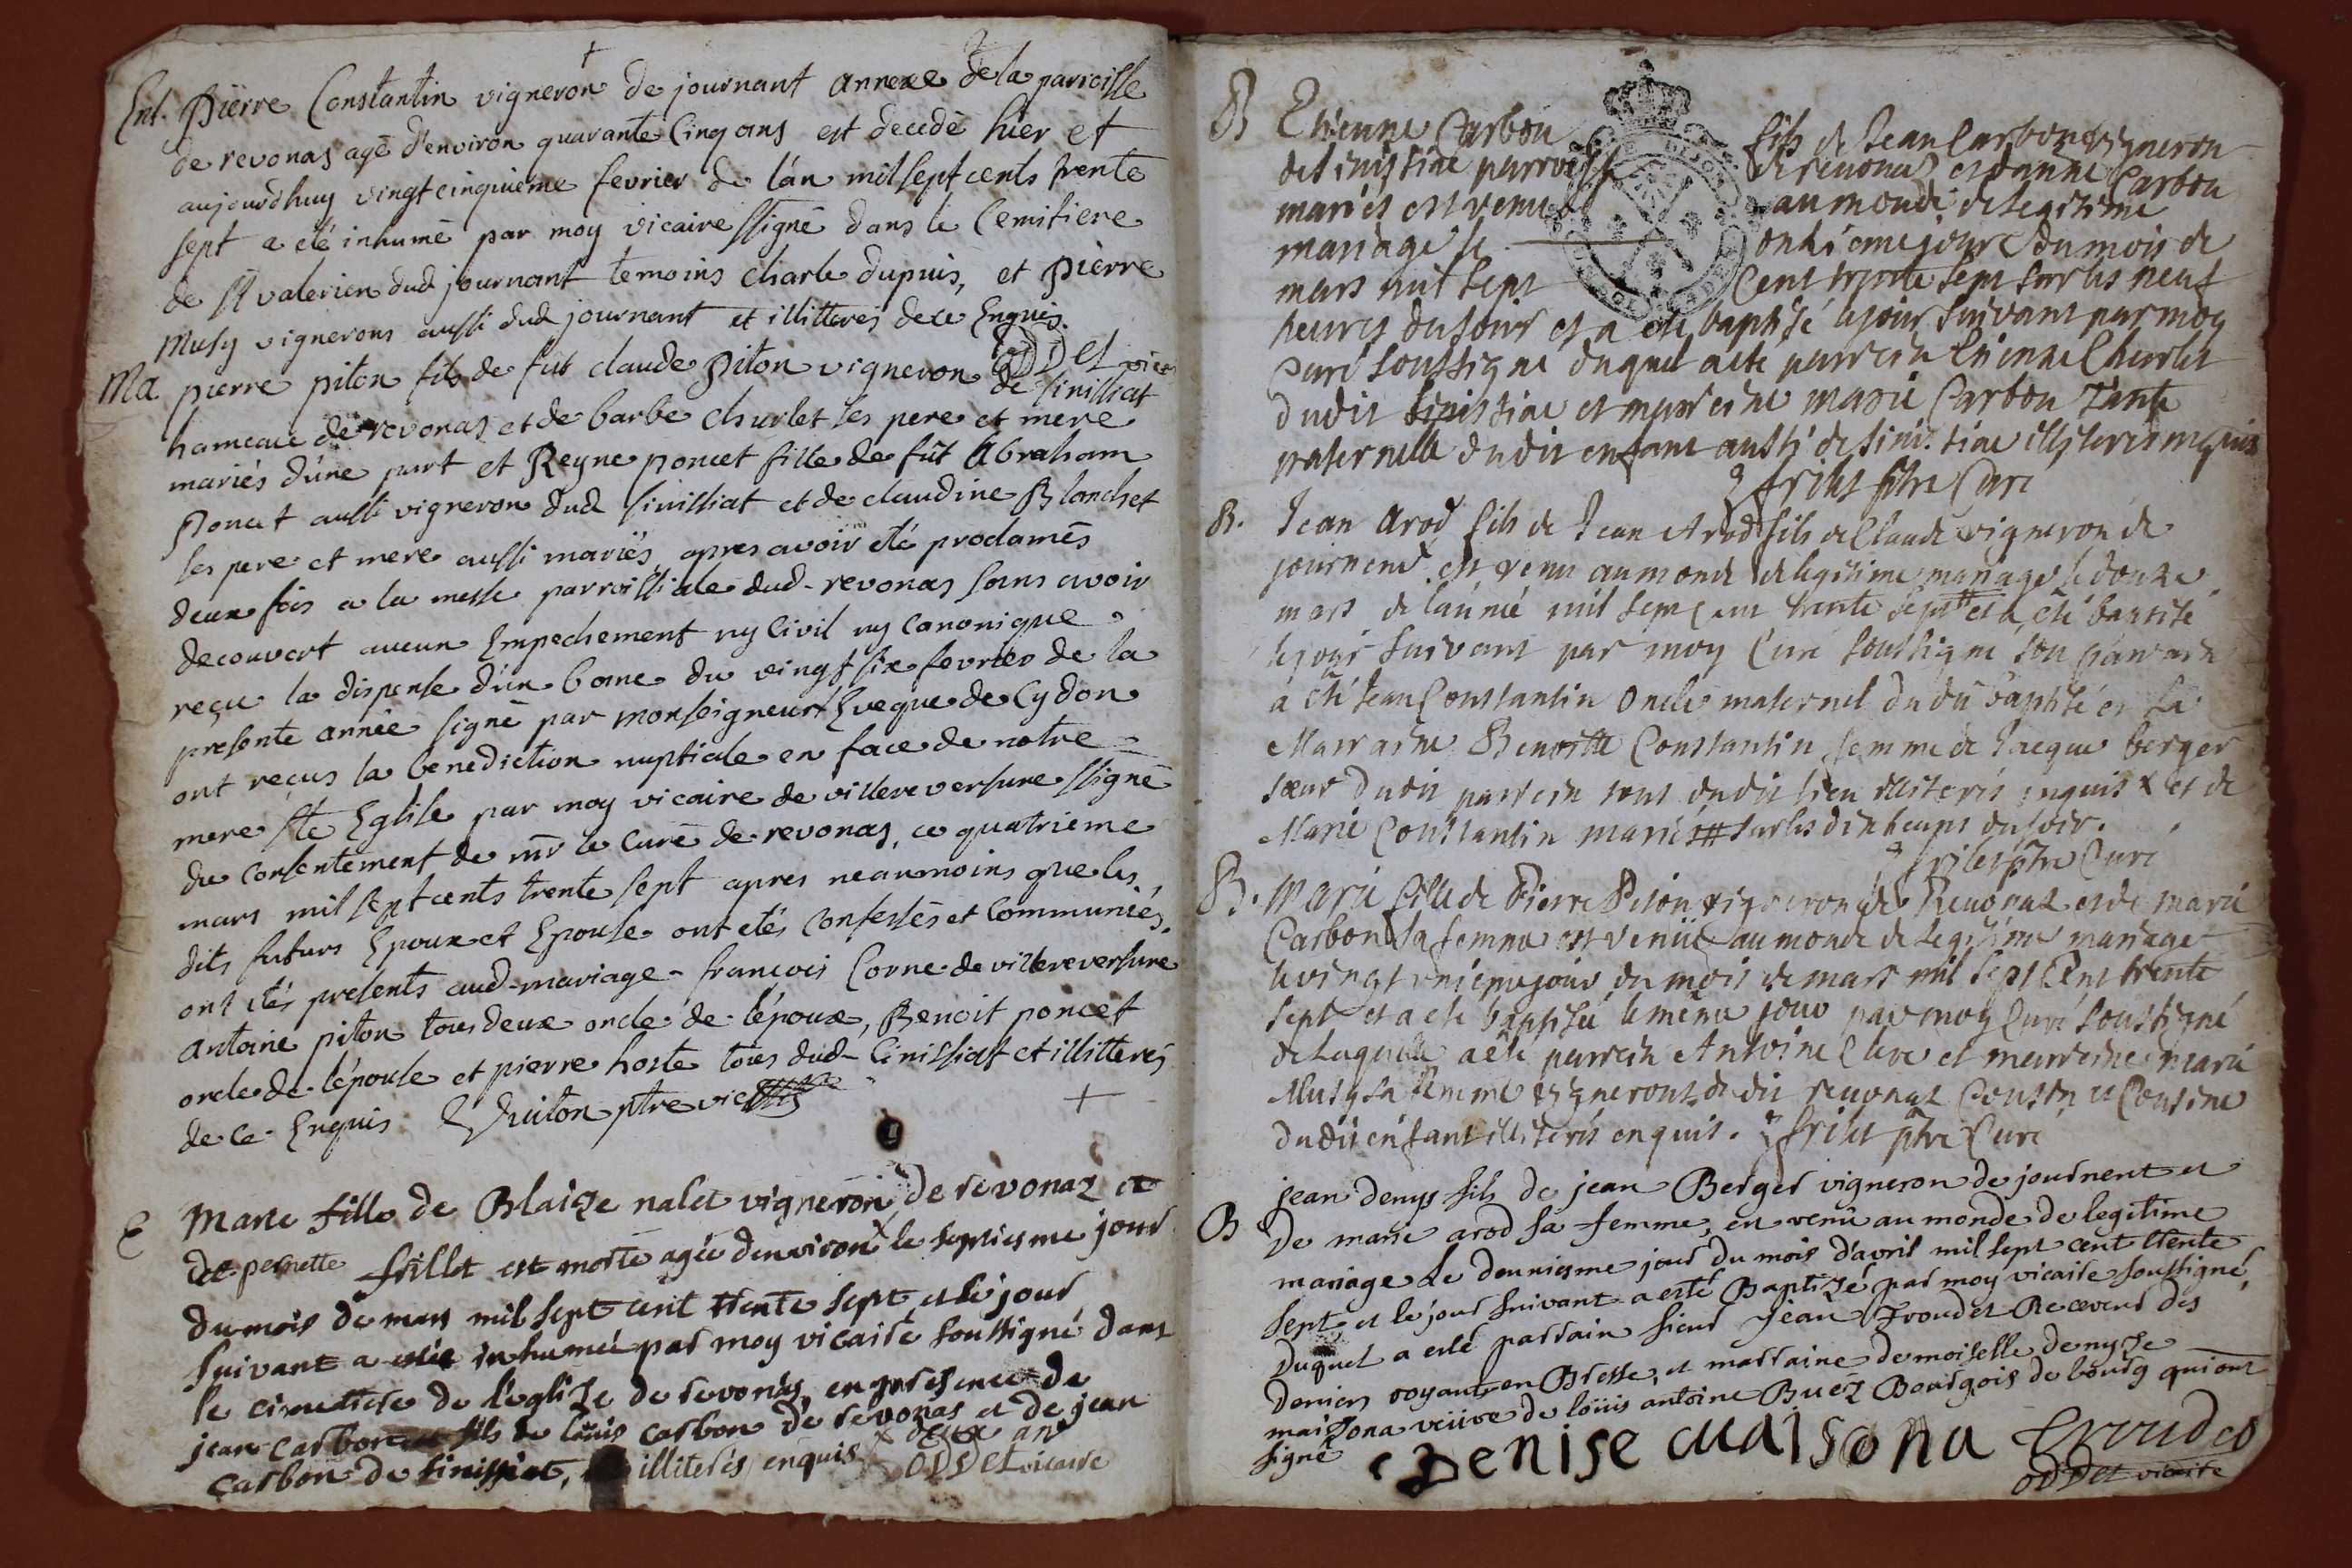 Ent. Pierre Constantin vigneron de journant annexe de la paroisse
de revonas agé d'environ quarante cinq ans est decedé hier et
aujourdhuy vingt cinquieme fevrier de l'an mil sept cents trente
sept a été inhumé par moy vicaire ssigné dans le Cemitiere
de St valerien dud journant temoins charle dupuis, et pierre
Musy vignerons aussi dud journant et illitterés de ce Enquis.
oddet vic
Ma pierre piton fils de fut claude piton vigneron de sinissiat
hameau de revonas et de barbe churlet ses pere et mere
mariés d'une part et Reyne poncet fille de fût Abraham
Poncet aussi vigneron dud sinissiat et de claudine Blonchet
ses pere et mere aussi mariés, apres avoir été proclamés
deux fois a la messe parroissiale dud revonas sans avoir
decouvert aucun Empechement ny Civil ny Canonique
reçu la dispense d'un bane du vingt six fevrier de la
presente année signé par monseigneur l'Eveque de Cydon
ont reçus la benediction nuptiale en face de notre
mere Ste Eglise par moy vicaire de villereversure ssigné
du consentement de mr le curé de revonas, ce quatrieme
mars mil sept cents trente sept apres neanmoins que les
dits futurs Epoux et Epouse ont etés confessés et communiés.
ont etés presents aud mariage françois Corne de villereversure
antoine piton tous deux oncle de l'époux, Benoit poncet
oncle de l'épouse et pierre hoste tous dud Sinissiat et illitterés
de ce Enquis ptre vic
E Marie fille de Blaize nalet vigneron de revonaz et
de pernette frillet est morte agée denviron x le septiesme jour
du mois de mars mil sept cent trente sept et le jour
suivant a estée inhumée par moy vicaire soussigné dans
le cimettiere de l'eglize de revonas, en presence de
jean carbon fils de loüis carbon de revonas et de jean
carbon de sinissiat, illiterés enquis x deux ans
oddet vicaire
B Etienne Carbon fils de Jean Carbon vigneron
de sinissiae parroisse de revonas et danne Carbon
mariés est venu au monde de legitime
mariage le onzieme jour du mois de
mars mil sept cent trente sept sur les neuf
heures du soir et a été baptisé le jour suivant par moy
curé soussigné duquel a ete parrein Etienne Churlet
dudit sinissiae et marreine marie Carbon tante
paternelle dudit enfant aussi de sinissiae illiterés enquis
frilet ptre Curé
B. Jean Arod fils de Jean Arod fils de Claude vigneron de
journent est venu au monde de legitime mariage le douze
mars de lannée mil sept cent trente sept # et a été baptisé
le jour suivant par moy Curé soussigné son parrain
a été Jean Constantin oncle maternel dudit baptisé et la
Marraine Benoitte Constantin femme de Jacque berger
sœur dudit parrein tous dudit lieu illiterés enquis x et de
Marie Constantin mariés # sur les dix heures du soir.
frilet ptre Curé
B. Marie fille de Pierre Piton vigneron de Revonaz et de marie
Carbon sa femme est venüe au monde de legitime mariage
le vingt uniéme jour du mois de mars mil sept Cent trente
sept et a été baptisée le même jour par moy Curé soussigné
de laquelle a été parrein Antoine Cleve et marreine marie
Musy sa femme vignerons dudit revonaz Cousin et Cousine
dudit enfant illiterés enquis. frilet ptre Curé
B jean denys fils de jean Berger vigneron de journent et
De marie arod sa femme, en venû au monde de legitime
mariage Le deuxiesme jour du mois d'avril mil sept cent trente
sept, et le jour suivant a esté Baptizé par moy vicaire soussigné,
Duquel a esté parrain sieur jean Froudet Receveur des
deniers royaux en Bresse, et marraine demoiselle denyse
maizona veüve de loüis antoine Buéz Bourgois de bourg qui ont
signé Denise Maisona Froudet
oddet vicaire